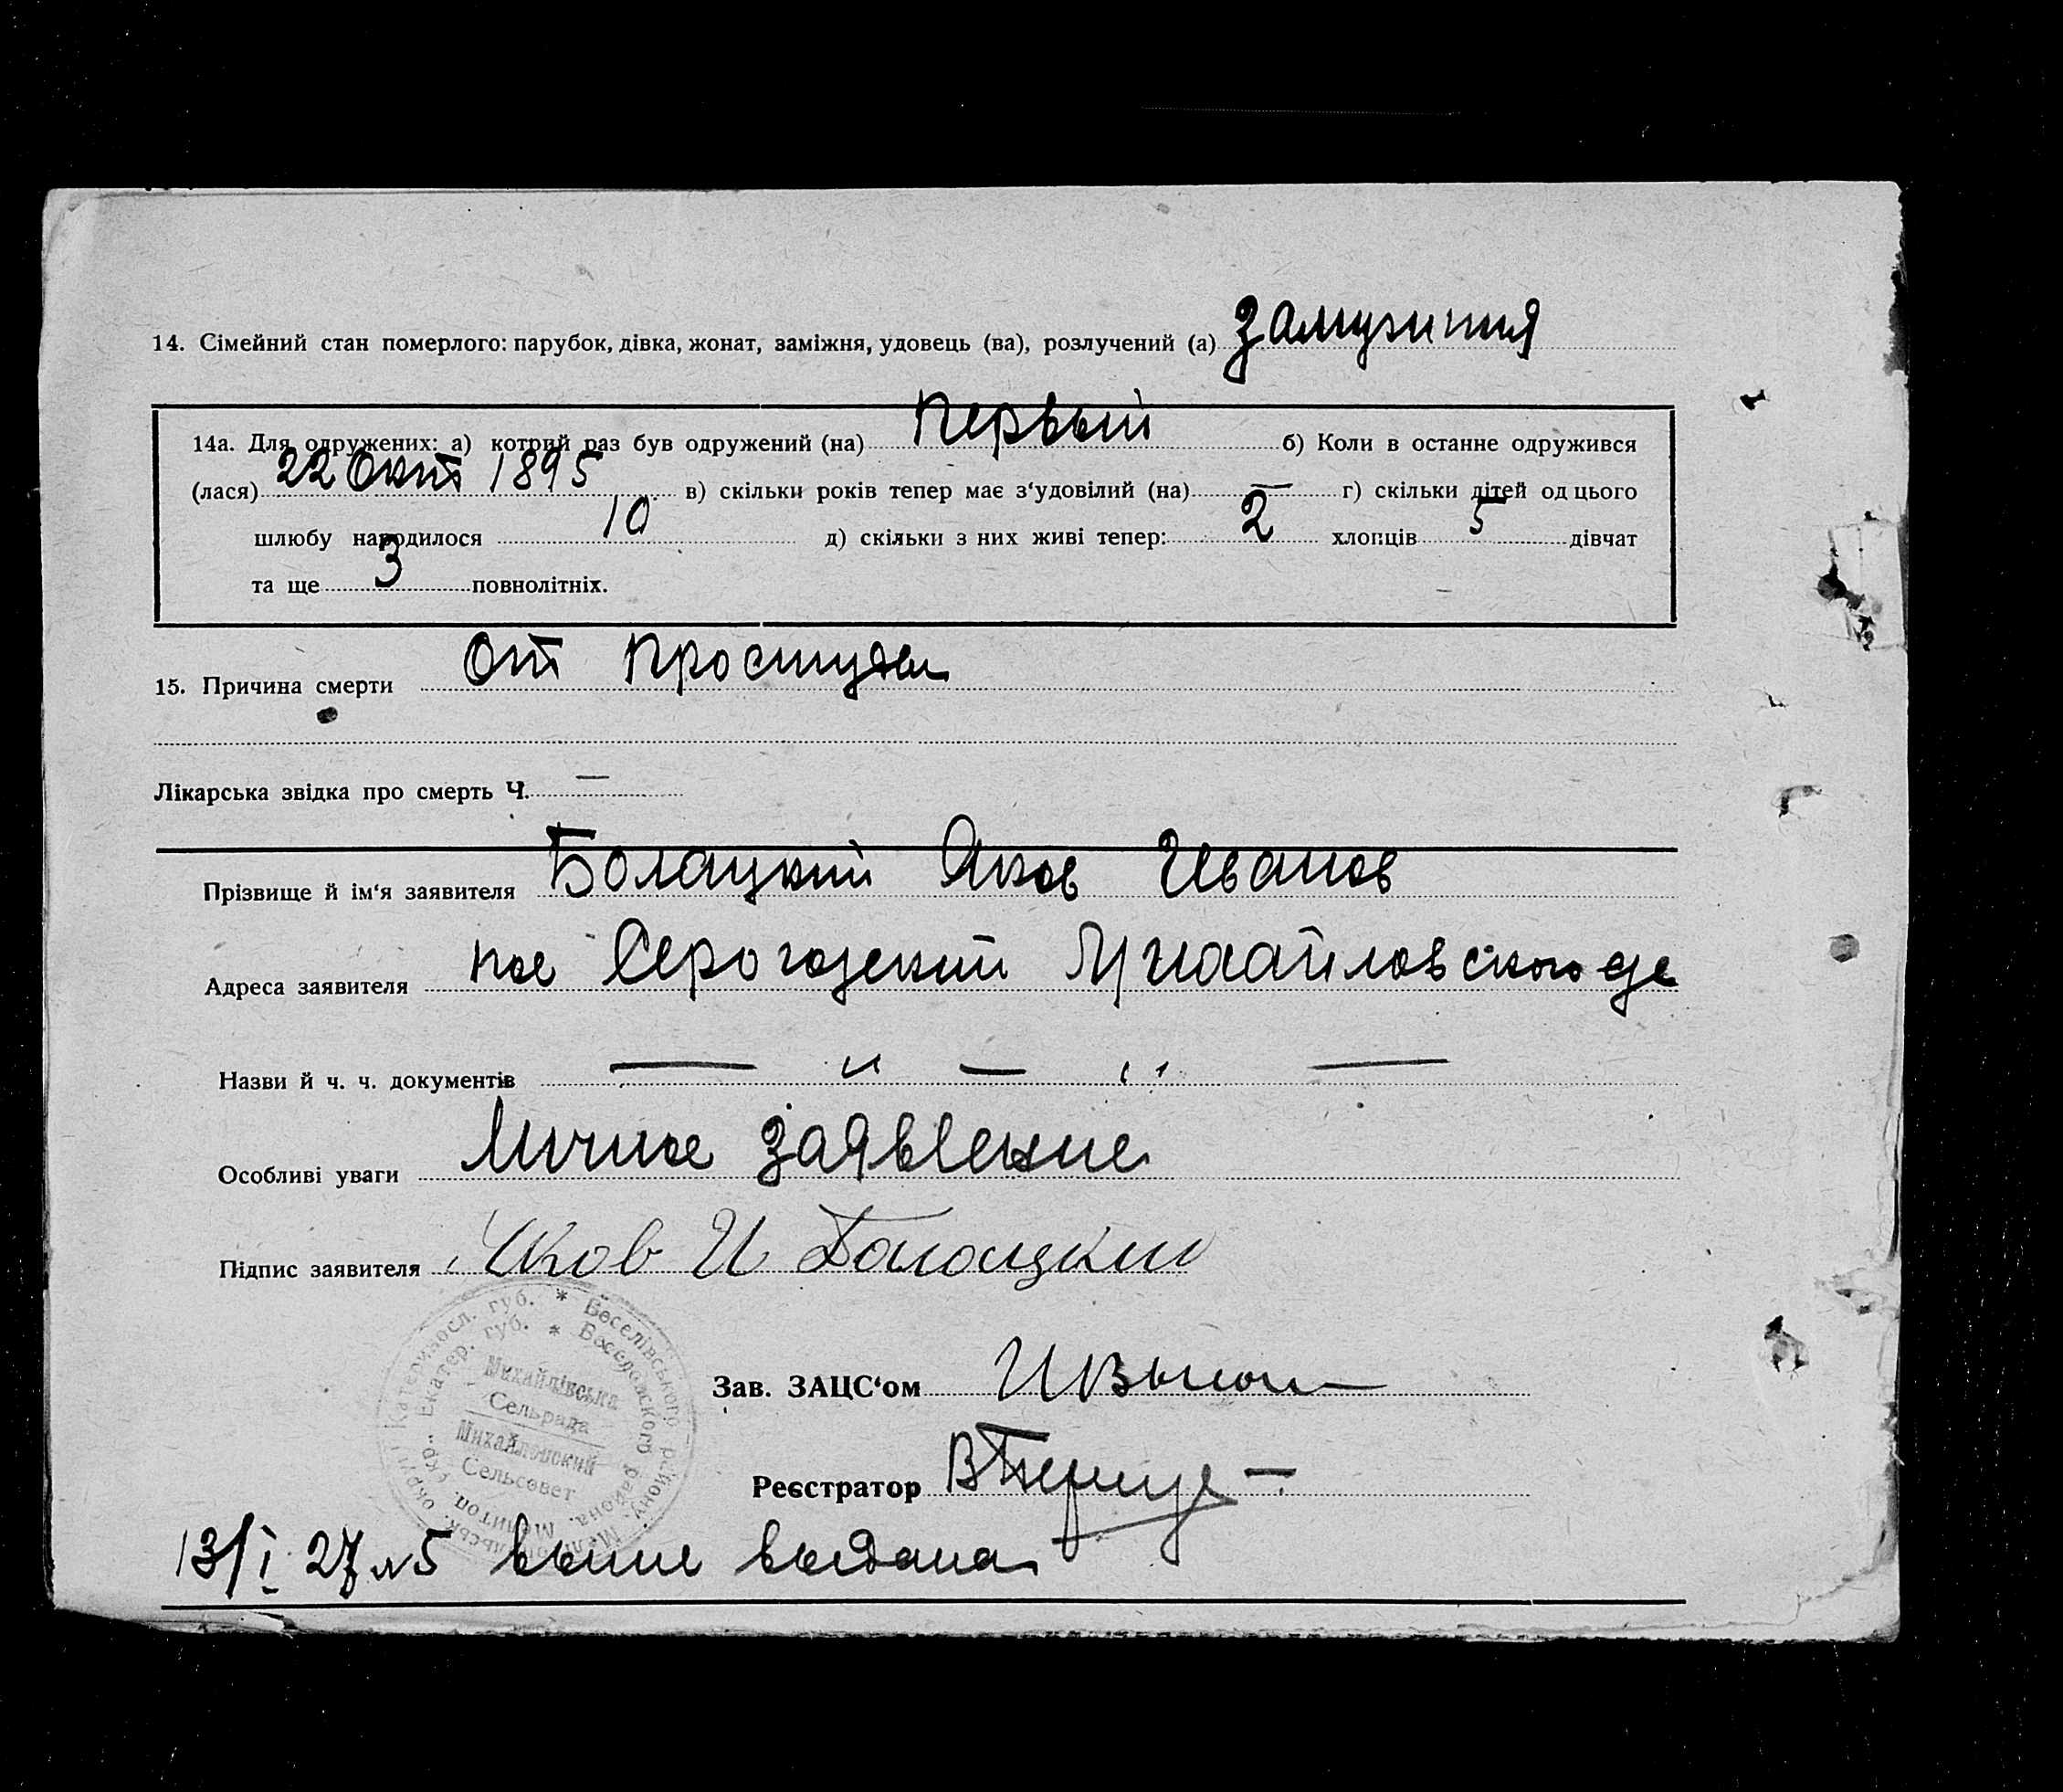 14. Сімейний стан померлого: парубок, дівка, жонат, заміжня, удовець (ва), розлучений (а) замужния
14а. Для одружених: а) котрий раз був одружений (на) первый б) Коли в останне одружився
(лася) 22 Окт 1895 в) скільки років тепер має з‘удовілий (на) — г) скільки дітей од цього
шлюбу народилося 10 д) скільки з них живі тепер: 2 хлопців 5 дівчат
та ще 3 повнолітніх.
15. Причина смерти От простуды
Лікарська звідка про смерть Ч. —
Прізвище й ім‘я заявителя Болацкий Яков Иванов
Адреса заявителя пос Серогозский Михайловского
Назви й ч. ч. документів — и — " —
Особливі уваги Личное заявление
Підпис заявителя Яков И Болоцкий
Катериносл. губ. * Веселівського району, Мелітопільськ. округи
Екатер. губ. * Веселовского района, Мелитоп. окр.
Михайлівська
Сельрада
Михайловский
Сельсовет
Зав. ЗАЦС‘ом
Реєстратор
13/I 27 №5 выпис выдана